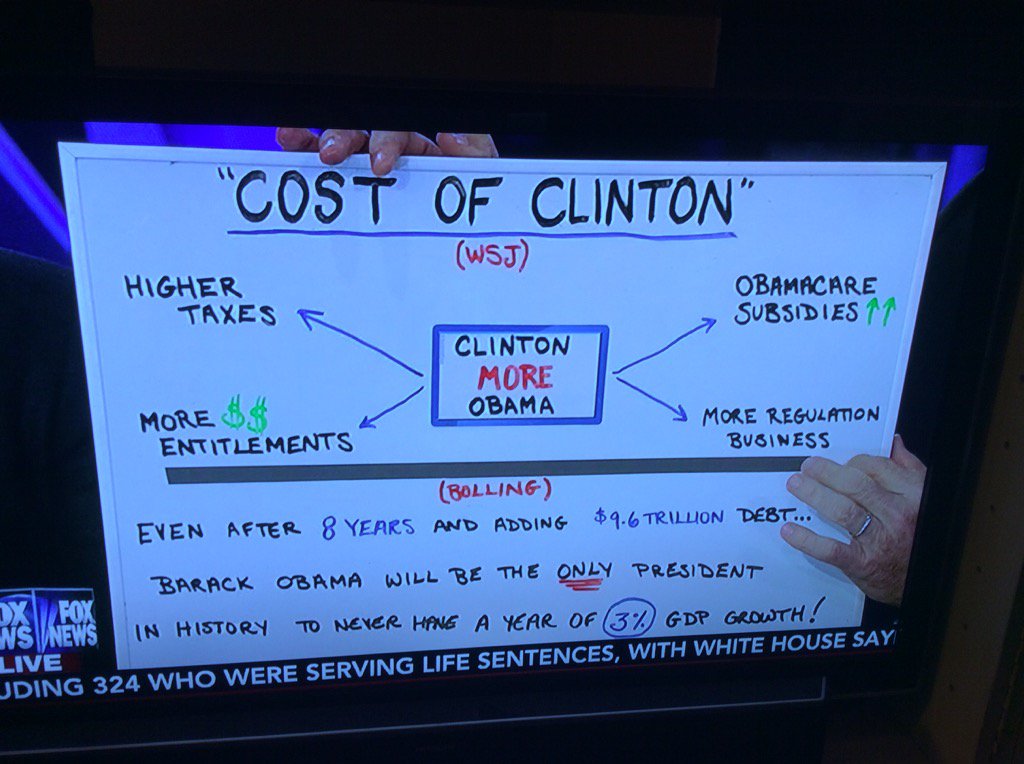 "COST OF CLINTON"
(WSJ)
HIGHER
TAXES
OBAMACARE
SUBSIDIES ↑↑
CLINTON
MORE
OBAMA
MORE $$
ENTITLEMENTS
MORE REGULATION
BUSINESS
(BOLLING)
EVEN AFTER 8 YEARS AND ADDING $9.6 TRILLION DEBT...
BARACK OBAMA WILL BE THE ONLY PRESIDENT
IN HISTORY TO NEVER HAVE A YEAR OF 3% GDP GROWTH!
OX FOX
WS NEWS
LIVE
UDING 324 WHO WERE SERVING LIFE SENTENCES, WITH WHITE HOUSE SAY